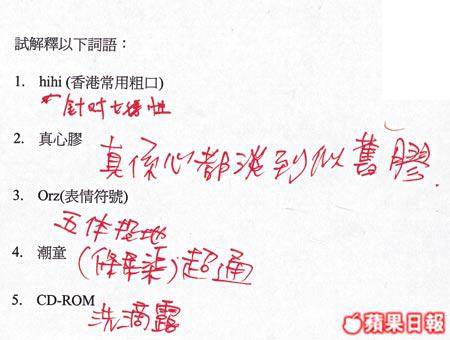 試解釋以下詞語：
1. hihi (香港常用粗口)
針对女性
2. 真心膠
真係心都淡到似舊膠.
3. Orz(表情符號)
五体投地
4. 潮童
(條渠)超通
5. CD-ROM
洗滴露
蘋果日報